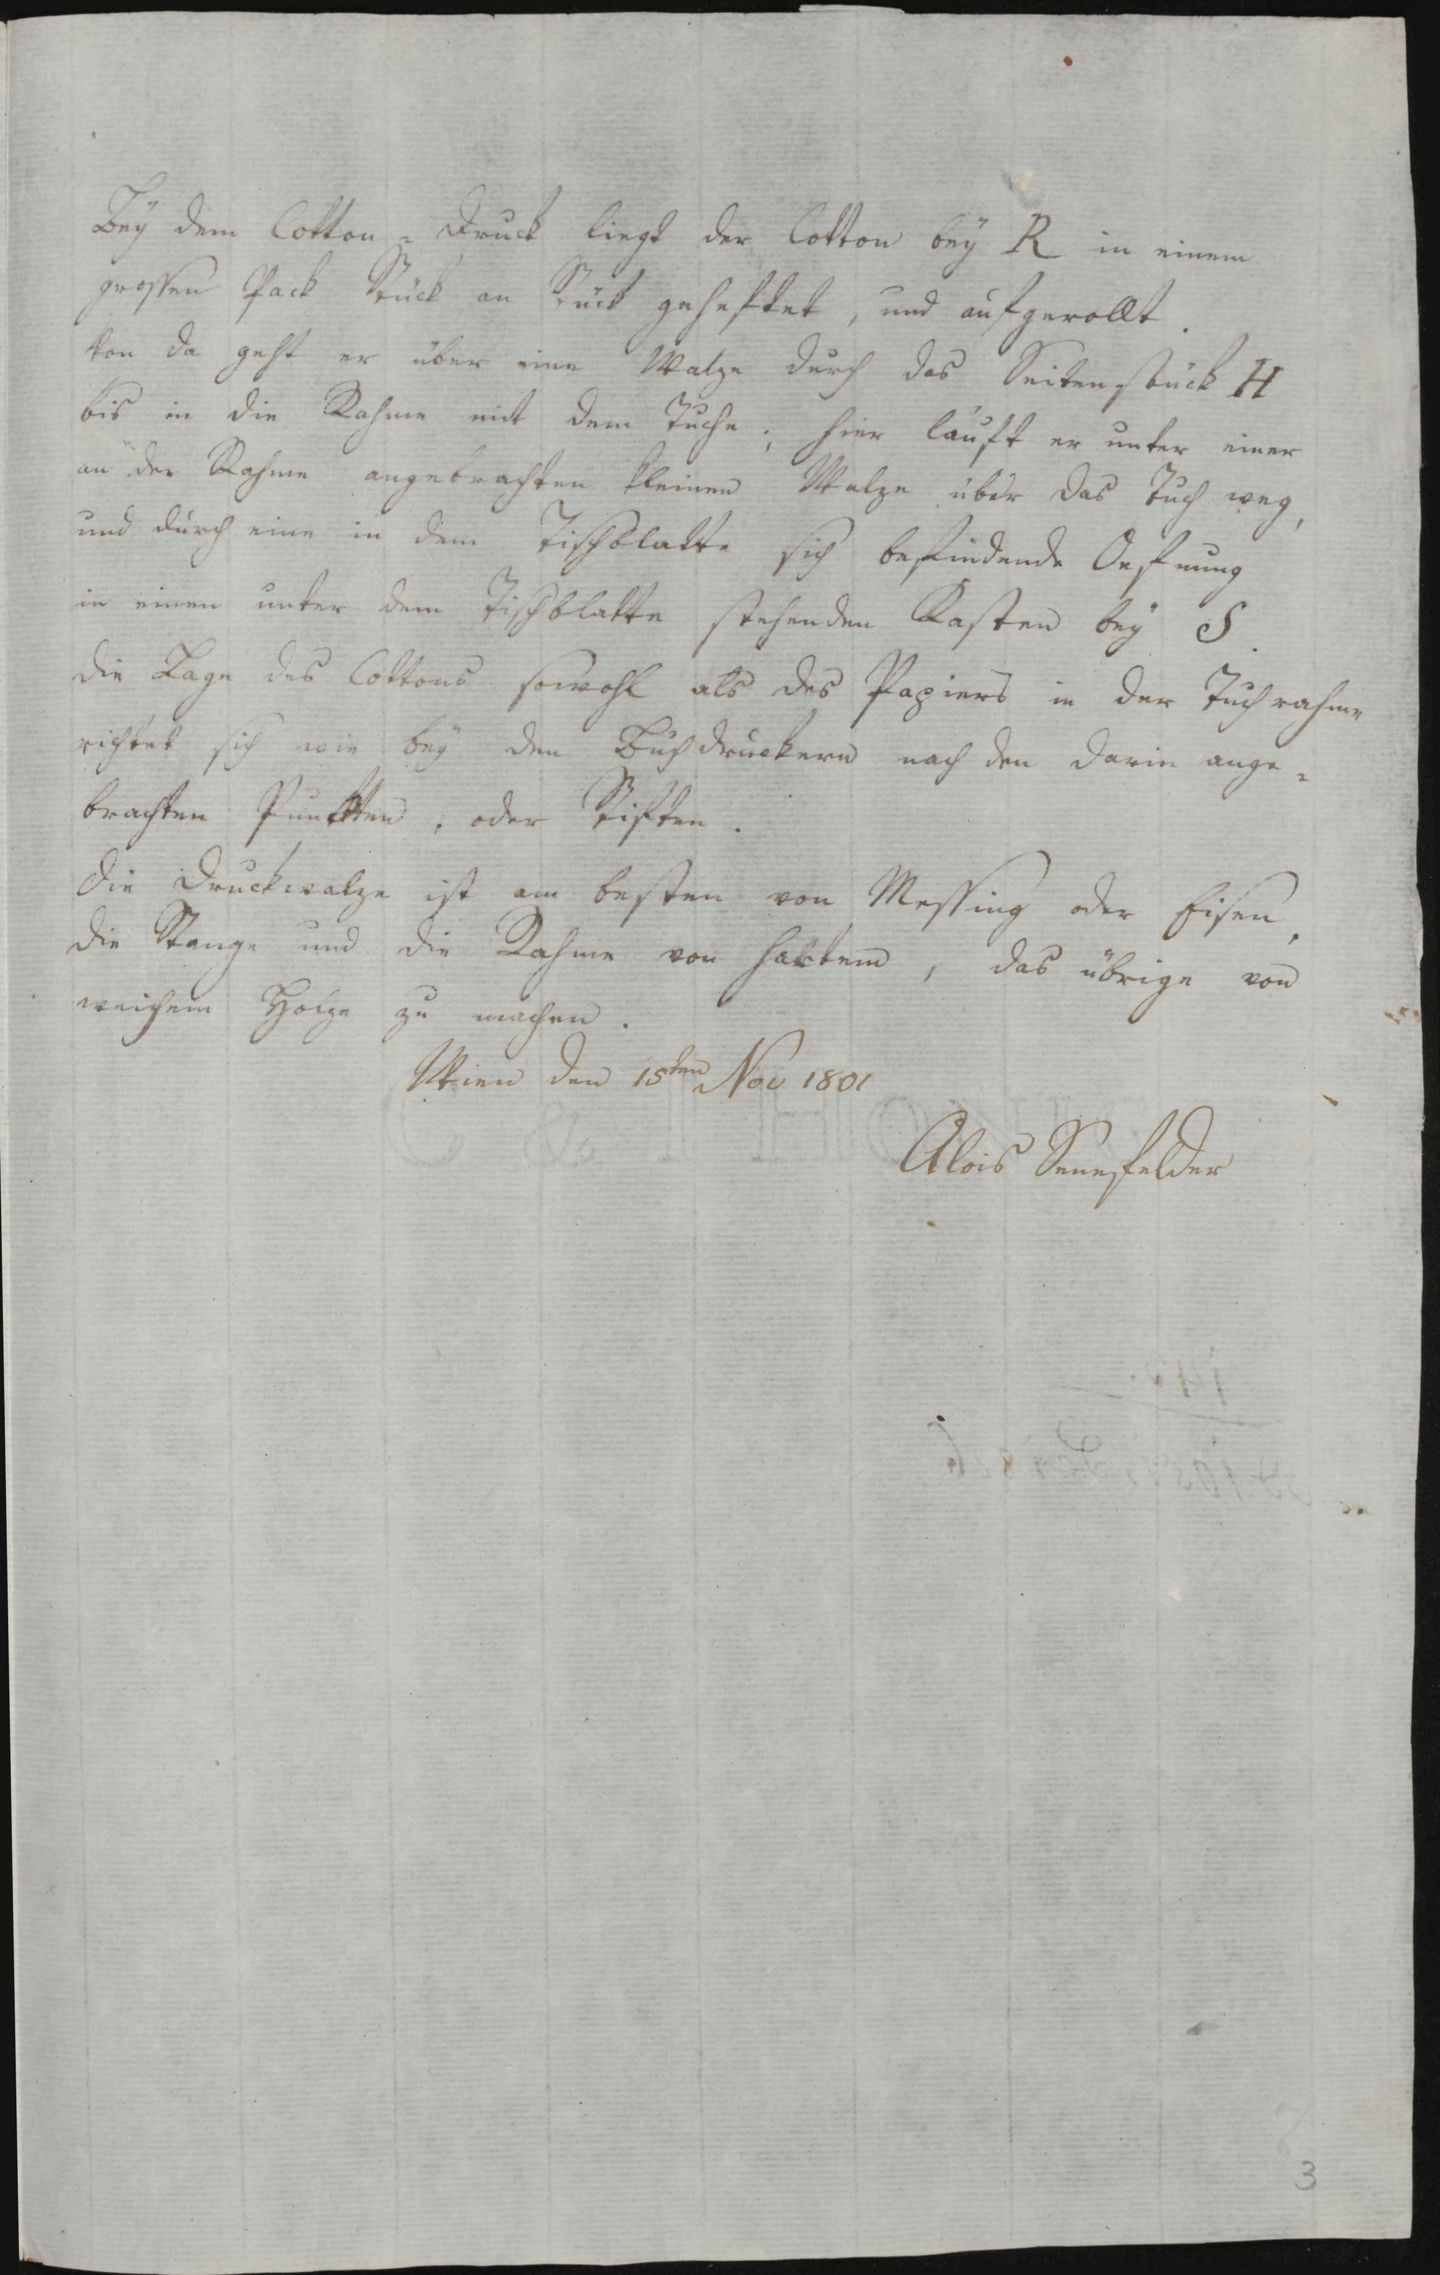 Bey dem Cotton=Druck liegt der Cotton bey R in einem
grossen Pack Stück an Stück geheftet, und aufgerollt.
Von da geht er über eine Walze durch das Seitenstück H
bis in die Rahme mit dem Tuche; hier läuft er unter einer
an der Rahme angebrachten kleinen Walze über das Tuch weg,
und durch eine in dem Tischblatte sich befindende Oefnung
in einen unter dem Tischblatte stehenden Kasten bey S.
Die Lage des Cottons sowohl als des Papiers in der Tuchrahme
richtet sich wie bey den Buchdruckern nach den darin ange=
brachten Punkten, oder Stiften.
Die Druckwalze ist am besten von Messing oder Eisen,
die Stange und die Rahme von hartem, das übrige von
weichem Holze zu machen.
Wien den 15ten Nov 1801
Alois Senefelder
3